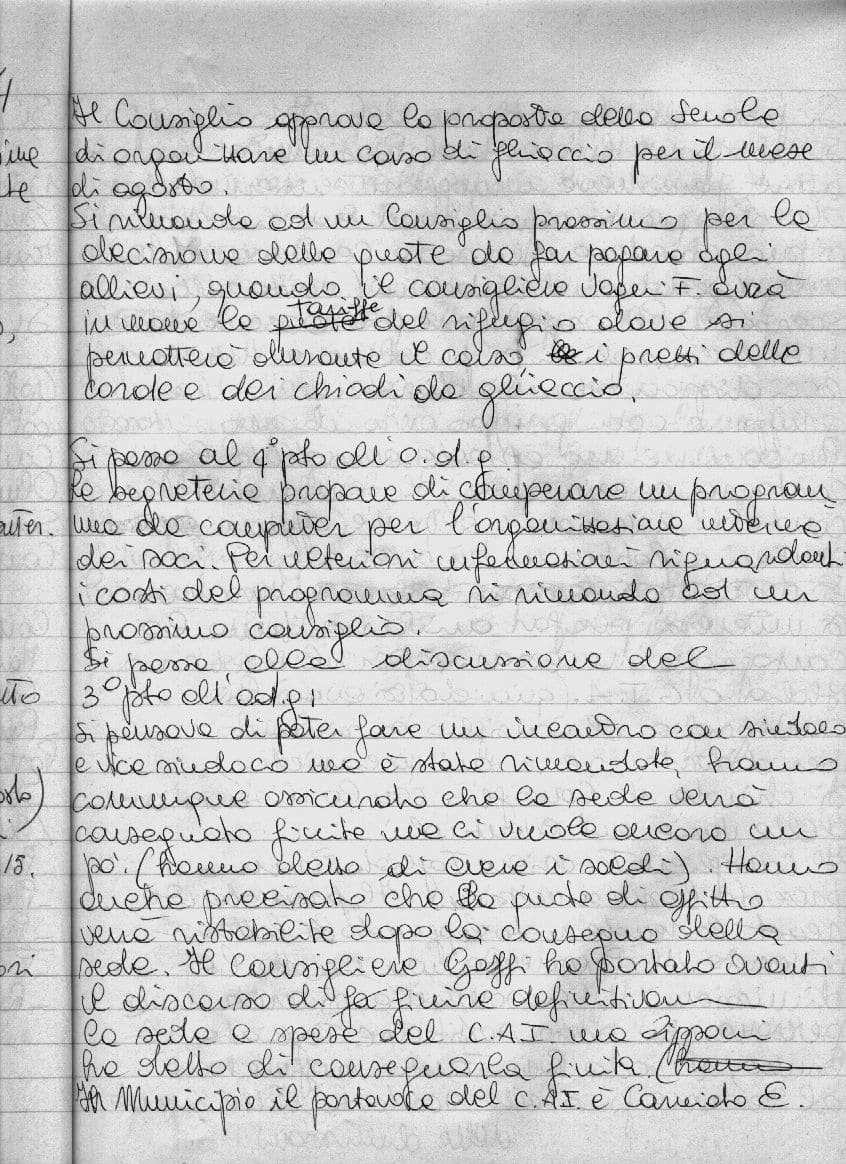 Il Consiglio approva la proposta della Scuola
di organizzare un corso di ghiaccio per il mese
di agosto.
Si rimanda ad un Consiglio prossimo per la
decisione delle quote da far pagare agli
allievi, quando il consigliere F. avrà
tariffe
in mano le quote del rifugio dove si
pernotterà durante il corso, i prezzi delle
corde e dei chiodi da ghiaccio.
Si passa al 4° pto dll' o.d.g.
La segreteria propone di comperare un program
ma da computer per l'organizzazione interna
dei soci. Per ulteriori informazioni riguardanti
i costi del programma si rimanda ad un
prossimo consiglio.
Si passa alla discussione del
3° pto dll'o.d.g.
Si pensava di poter fare un incontro con sindaco
e vice sindaco ma è stata rimandata, hanno
comunque assicurato che la sede verrà
consegnata finita ma ci vuole ancora un
po'. (hanno detto di avere i soldi). Hanno
anche precisato che la quota di affitto
verrà ristabilita dopo la consegna della
sede. Il Consigliere Goffi ha portato avanti
il discorso di fa finire definitivam
la sede a spese del C.A.I. ma
ha detto di consegnarla finita. (hanno
In Municipio il portavoce del C.A.I. è E.